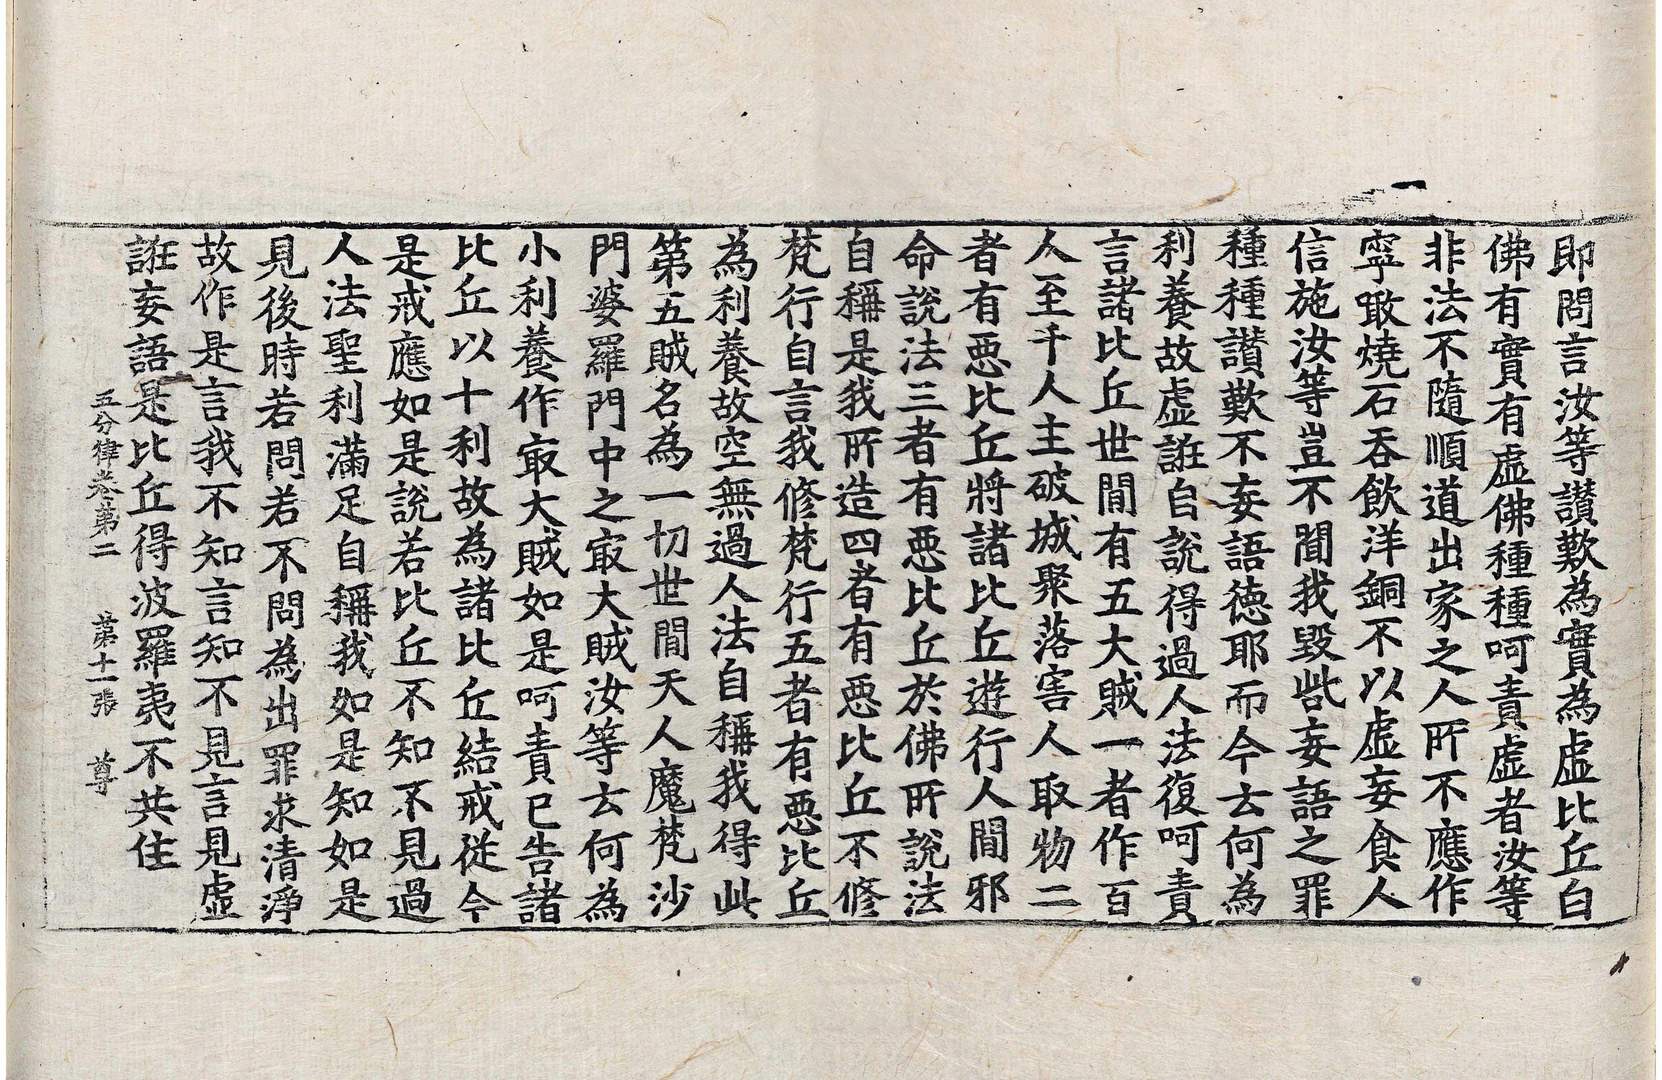 即問言汝等讃歎為實為虛比丘白
佛有實有虛佛種種呵責虛者汝等
非法不隨順道出家之人所不應作
寧噉燒石吞飲洋銅不以虛妄食人
信施汝等豈不聞我毀呰妄語之罪
種種讃歎不妄語德耶而今云何為
利養故虛誑自說得過人法復呵責
言諸比丘世間有五大賊一者作百
人至千人主破城聚落害人取物二
者有惡比丘將諸比丘遊行人間邪
命說法三者有惡比丘於佛所說法
自稱是我所造四者有惡比丘不修
梵行自言我修梵行五者有惡比丘
為利養故空無過人法自稱我得此
第五賊名為一切世間天人魔梵沙
門婆羅門中之㝡大賊汝等云何為
小利養作㝡大賊如是呵責已告諸
比丘以十利故為諸比丘結戒從今
是戒應如是說若比丘不知不見過
人法聖利滿足自稱我如是知如是
見後時若問若不問為出罪求清淨
故作是言我不知言知不見言見虛
誑妄語是比丘得波羅夷不共住
五分律卷第二 第十一張 尊